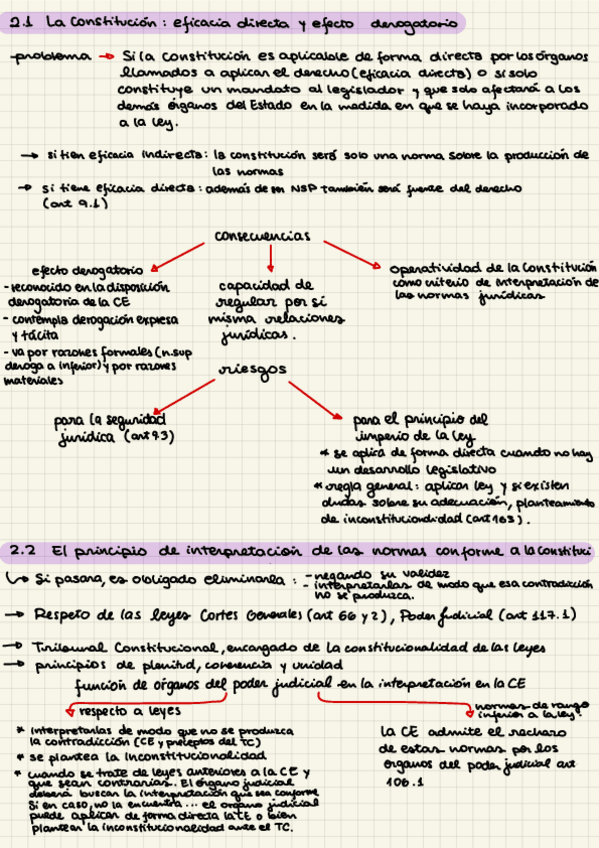 2.1 La Constitución: eficacia directa y efecto derogatorio
problema → Si la Constitución es aplicable de forma directa por los órganos
llamados a aplicar el derecho (eficacia directa) o si solo
constituye un mandato al legislador y que solo afectará a los
demás órganos del Estado en la medida en que se haya incorporado
a la ley.
→ si tien eficacia indirecta: la constitución será solo una norma sobre la producción de
las normas
→ si tiene eficacia directa: además de ser NSP también será fuente del derecho
(art 9.1)
consecuencias
efecto derogatorio
- reconocido en la disposición
derogatoria de la CE
- contempla derogación expresa
y tácita
- va por razones formales (n.sup
deroga a inferior) y por razones
materiales
capacidad de
regular por si
misma relaciones
jurídicas.
operatividad de la Constitución
como criterio de interpretación de
las normas jurídicas
riesgos
para la seguridad
jurídica (art 9.3)
para el principio del
imperio de la ley
* se aplica de forma directa cuando no hay
un desarrollo legislativo
* regla general: aplicar ley y si existen
dudas sobre su adecuación, planteamiento
de inconstitucionalidad (art 163).
2.2 El principio de interpretación de las normas conforme a la Constituci
↳ Si pasara, es obligado eliminarla: - negando su validez
- interpretarlas de modo que esa contradicción
no se produzca.
→ Respeto de las leyes Cortes Generales (art 66 y 2), Poder Judicial (art 117.1)
→ Tribunal Constitucional, encargado de la constitucionalidad de las leyes
→ principios de plenitud, coherencia y unidad
función de órganos del poder judicial en la interpretación en la CE
respecto a leyes
* interpretarlas de modo que no se produzca
la contradicción (CE y preceptos del TC)
* se plantea la inconstitucionalidad
* cuando se trate de leyes anteriores a la CE y
que sean contrarias. El órgano judicial
deberá buscar la interpretación que sea conforme
Si en caso, no la encuentra... el órgano judicial
puede aplicar de forma directa la CE o bien
plantear la inconstitucionalidad ante el TC.
normas de rango
inferior a la ley.
la CE admite el rechazo
de estas normas por los
órganos del poder judicial art
106.1